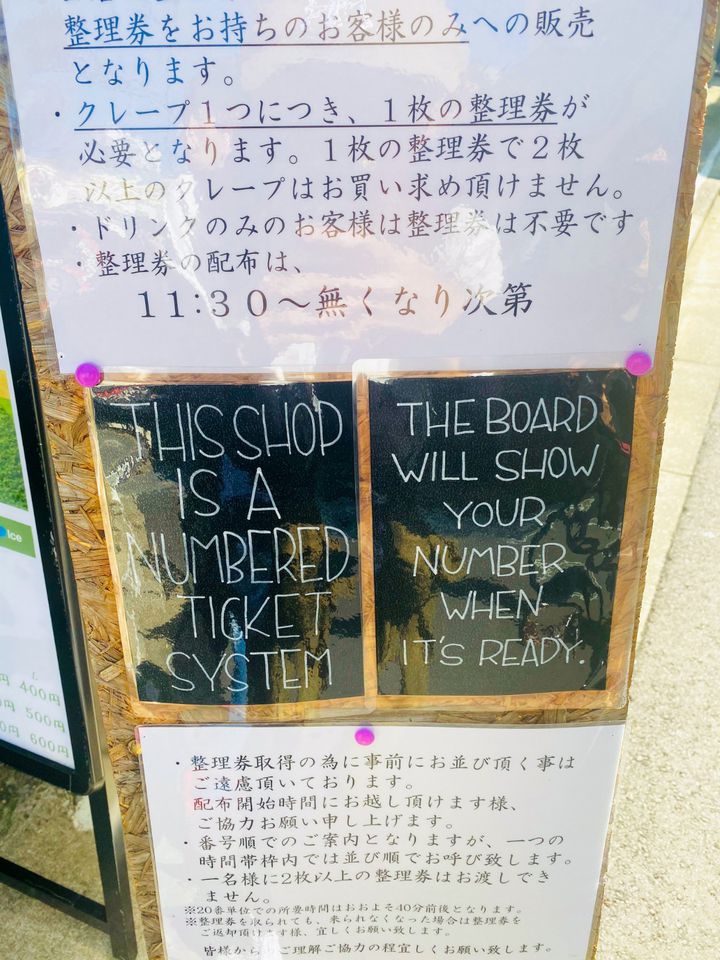 整理券をお持ちのお客様のみへの販売
となります。
・クレープ１つにつき、１枚の整理券が
必要となります。１枚の整理券で２枚
以上のクレープはお買い求め頂けません。
・ドリンクのみのお客様は整理券は不要です
・整理券の配布は、
１１:３０～無くなり次第
THIS SHOP
IS A
NUMBERED
TICKET
SYSTEM
THE BOARD
WILL SHOW
YOUR
NUMBER
WHEN
IT'S READY.
・整理券取得の為に事前にお並び頂く事は
ご遠慮頂いております。
配布開始時間にお越し頂けます様、
ご協力お願い申し上げます。
・番号順でのご案内となりますが、一つの
時間帯枠内では並び順でお呼び致します。
・一名様に2枚以上の整理券はお渡しでき
ません。
※20番単位での所要時間はおおよそ40分前後となります。
※整理券を取られても、来られなくなった場合は整理券を
ご返却頂けます様、宜しくお願い致します。
皆様からのご理解ご協力の程宜しくお願い致します。
Ice
L
400円
500円
600円